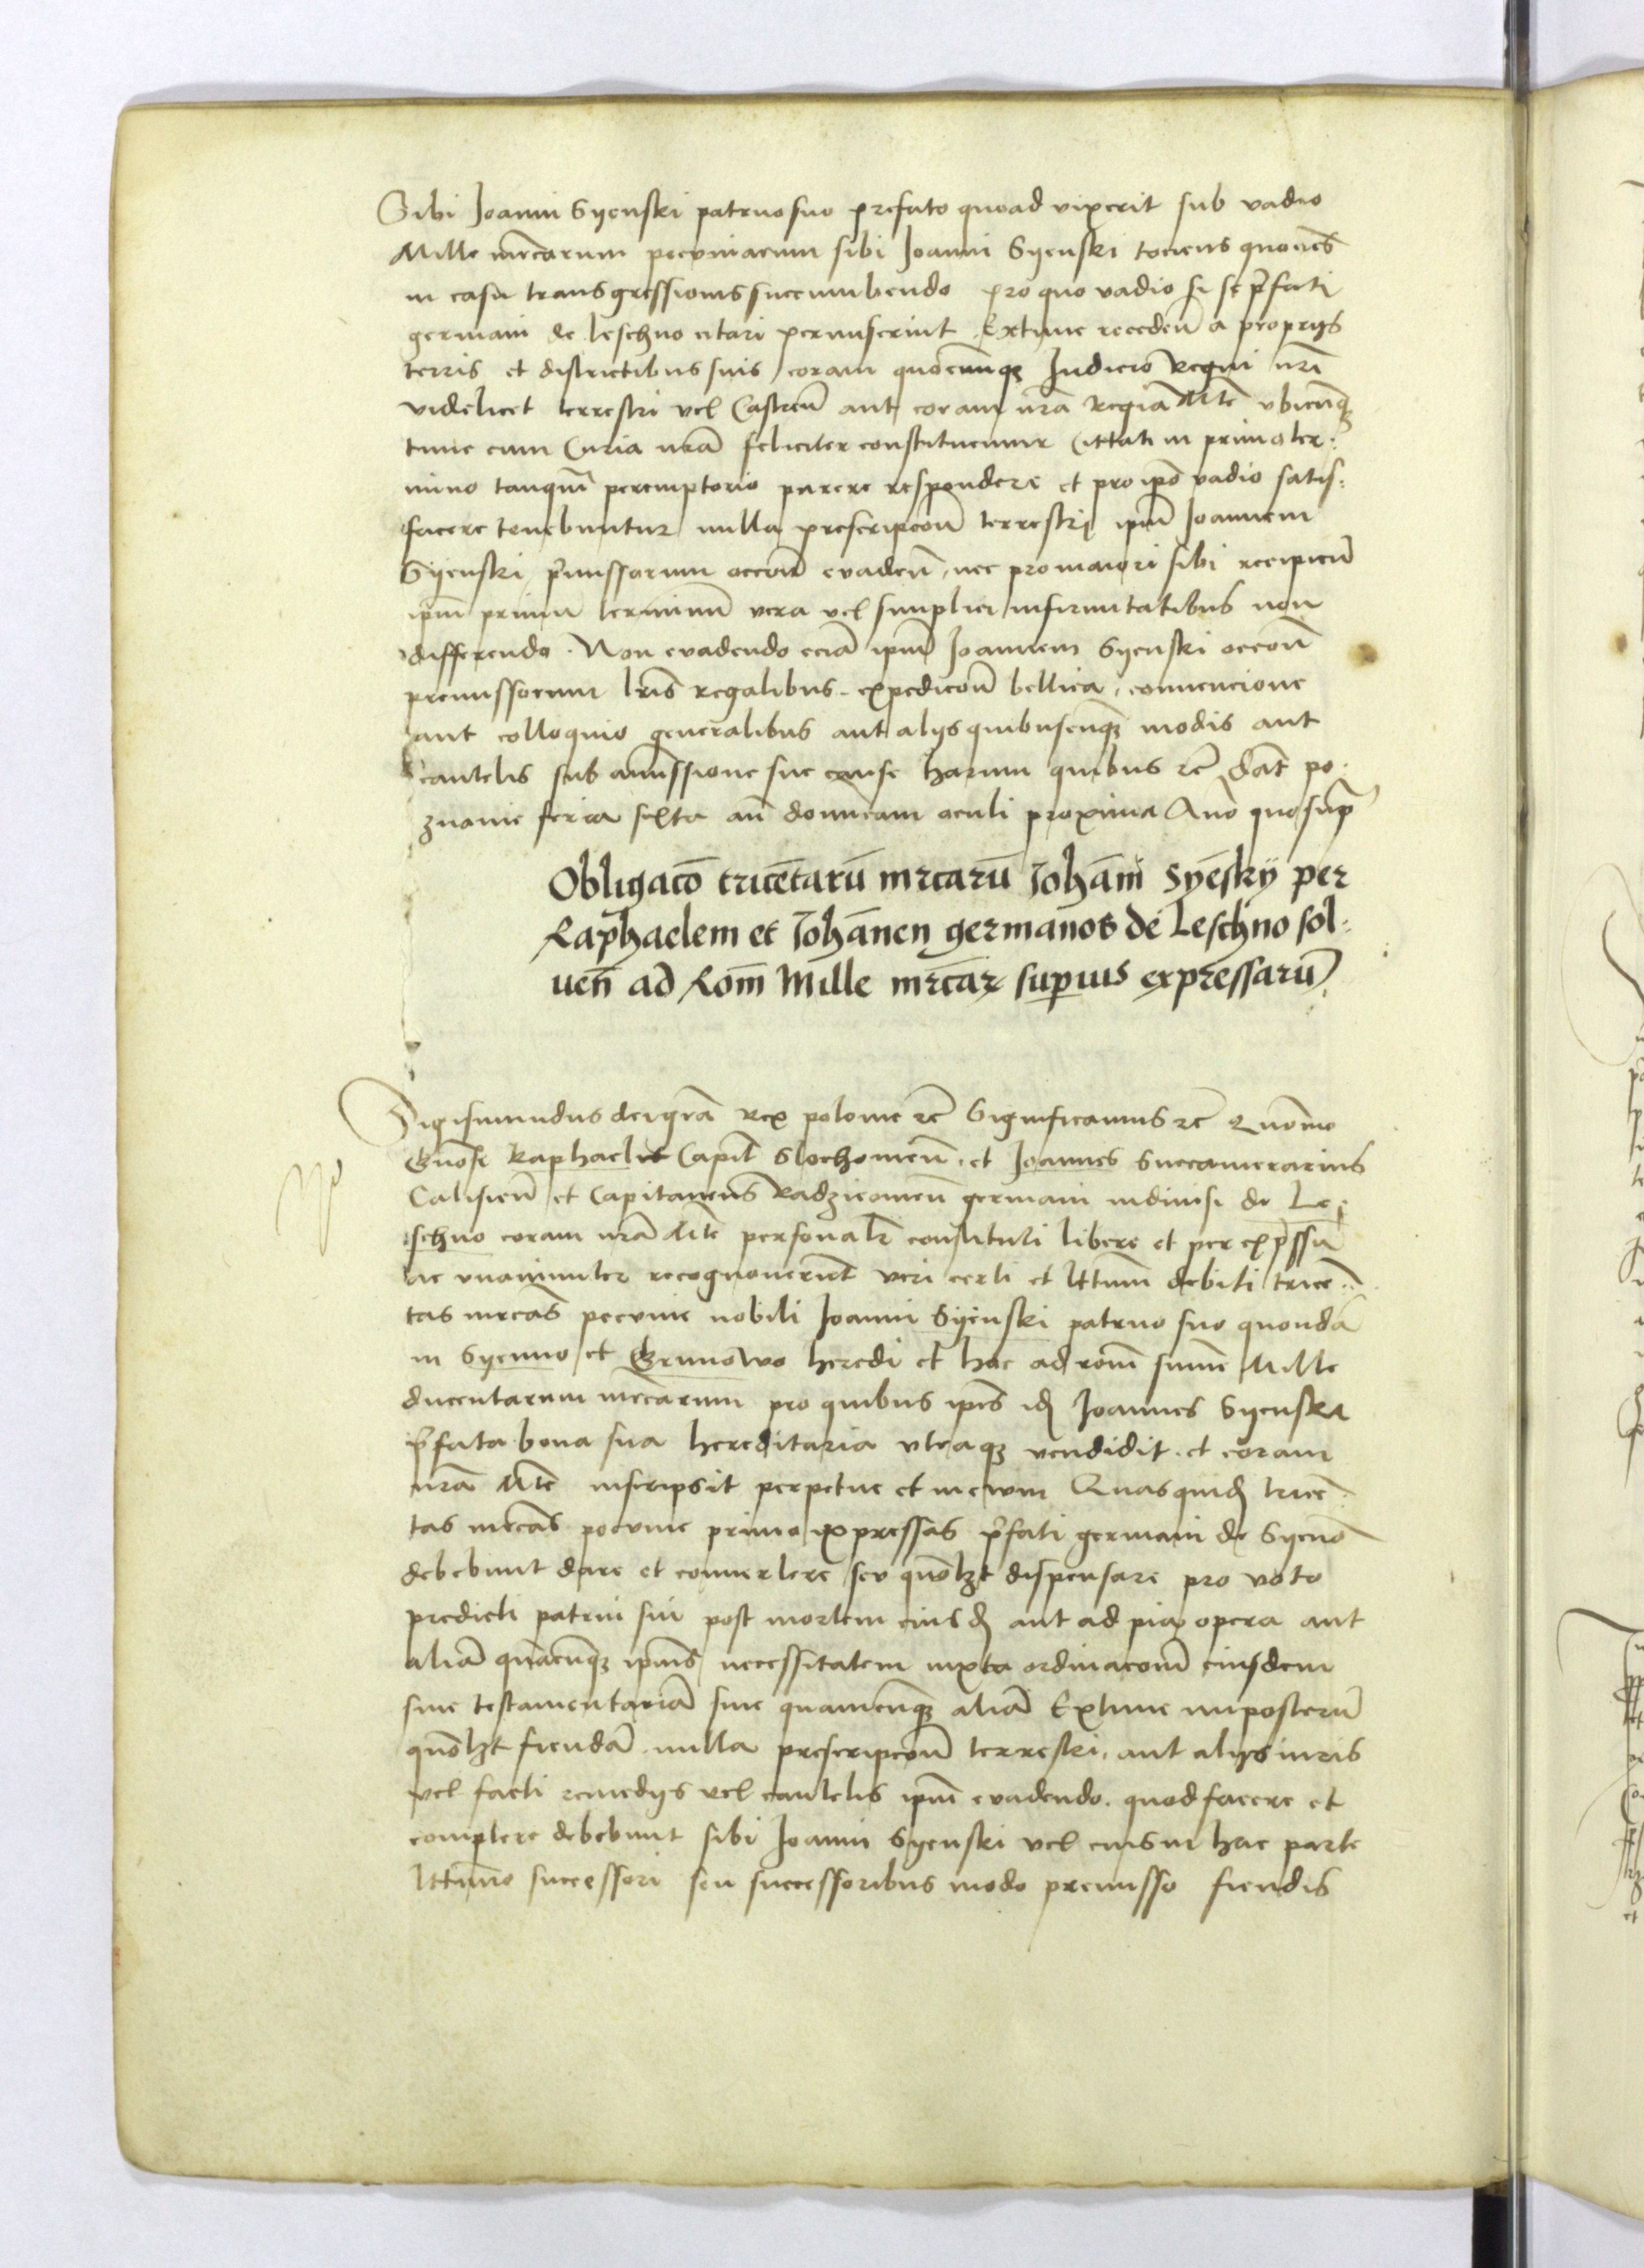 Sibi Joanni Syenski patruo suo prefato quoad vixerit sub vadio
Mille mrcarum pecuniarum sibi Joanni Syenski tociens quociens
in casu transgressionis succumbendo pro quo vadio si se p̃fati
germani de leschno citari permiserint Extunc receden̄ a proprijs
terris et districtibus suis coram quocumq; Judicio Regni nrī
videlicet terrestri vel Castren̄ aut coram nrā Regia Mte vbicunq;
tunc cum Curia nrā feliciter constituemur Cittati in primo ter:
mino tanqm̄ peremptorio parere respondere et pro ipō vadio satis:
facere tenebuntur nulla prescripcōn terrestri ipm̄ Joannem
Syenski p̄missorum occōn evaden̄, nec pro maiori sibi recipien̄
ipm̄ primū terminū vera vel simplici infirmitatibus non
differendo. Non evadendo eciā ipm̄ Joannem Syenski occōn
premissorum lrīs regalibus. expedicōn bellica, convencione
aut colloquio generalibus aut alijs quibuscunq; modis aut
cautelis sub amissione sue cause harum quibus rc̄ dat̄ po.
znanie feria sexta an̄ domīcam oculi proxima Anō quo sup̄
Obligacō tricētarū mrcarū Johāni Syēsky per
Raphaelem et Johānen germanos de Leschno sol:
uen̄ ad Rom̄ Mille mrcar superius expressarū
Sigismundus dei grā rex polonie rc̄ Significamus rc̄ Quōmo
Gnosi Raphaelis Capit̄ Slochomen̄. et Joannes Succamerarius
Calisien̄ et Capitaneus Radzieomen̄ germani indivisi de Le:
schno coram nrā Mte personalr̄ constituti libere et per exp̄ssū
ac vnanimiter recognouerūt veri certi et lttimi debiti tricē:
tas mrcas pecunie nobili Joanni Syenski patruo suo quondā
in Syenno et Grunowo heredi et hac ad rom̄ sum̄e Mille
ducentarum mrcarum pro quibus ipīs id Joannes Syenski
p̄fata bona sua hereditaria vtraq; vendidit. et coram
nrā Mte inscripsit perpetue et in evum Quasquid tricē:
tas mrcas pecunie primo expressas p̄fati germani de Syenō
debebunt dare et convertere seu quōlzt dispensare pro voto
predicti patrui sui post mortem eiusd aut ad pia opera aut
aliā quācunq; ipius necessitatem iuxta ordinacōm eiusdem
siue testamentariā siue quamcunq; aliā Extunc inposterū
quōlzt fiendā. nulla prescripcōn terrestri, aut alijs iuris
vel facti remedijs vel cautelis ipm̄ evadendo. quod facere et
complere debebunt sibi Joanni Syenski vel eius in hac parte
lttimo successori seu successoribus modo premisso fiendis